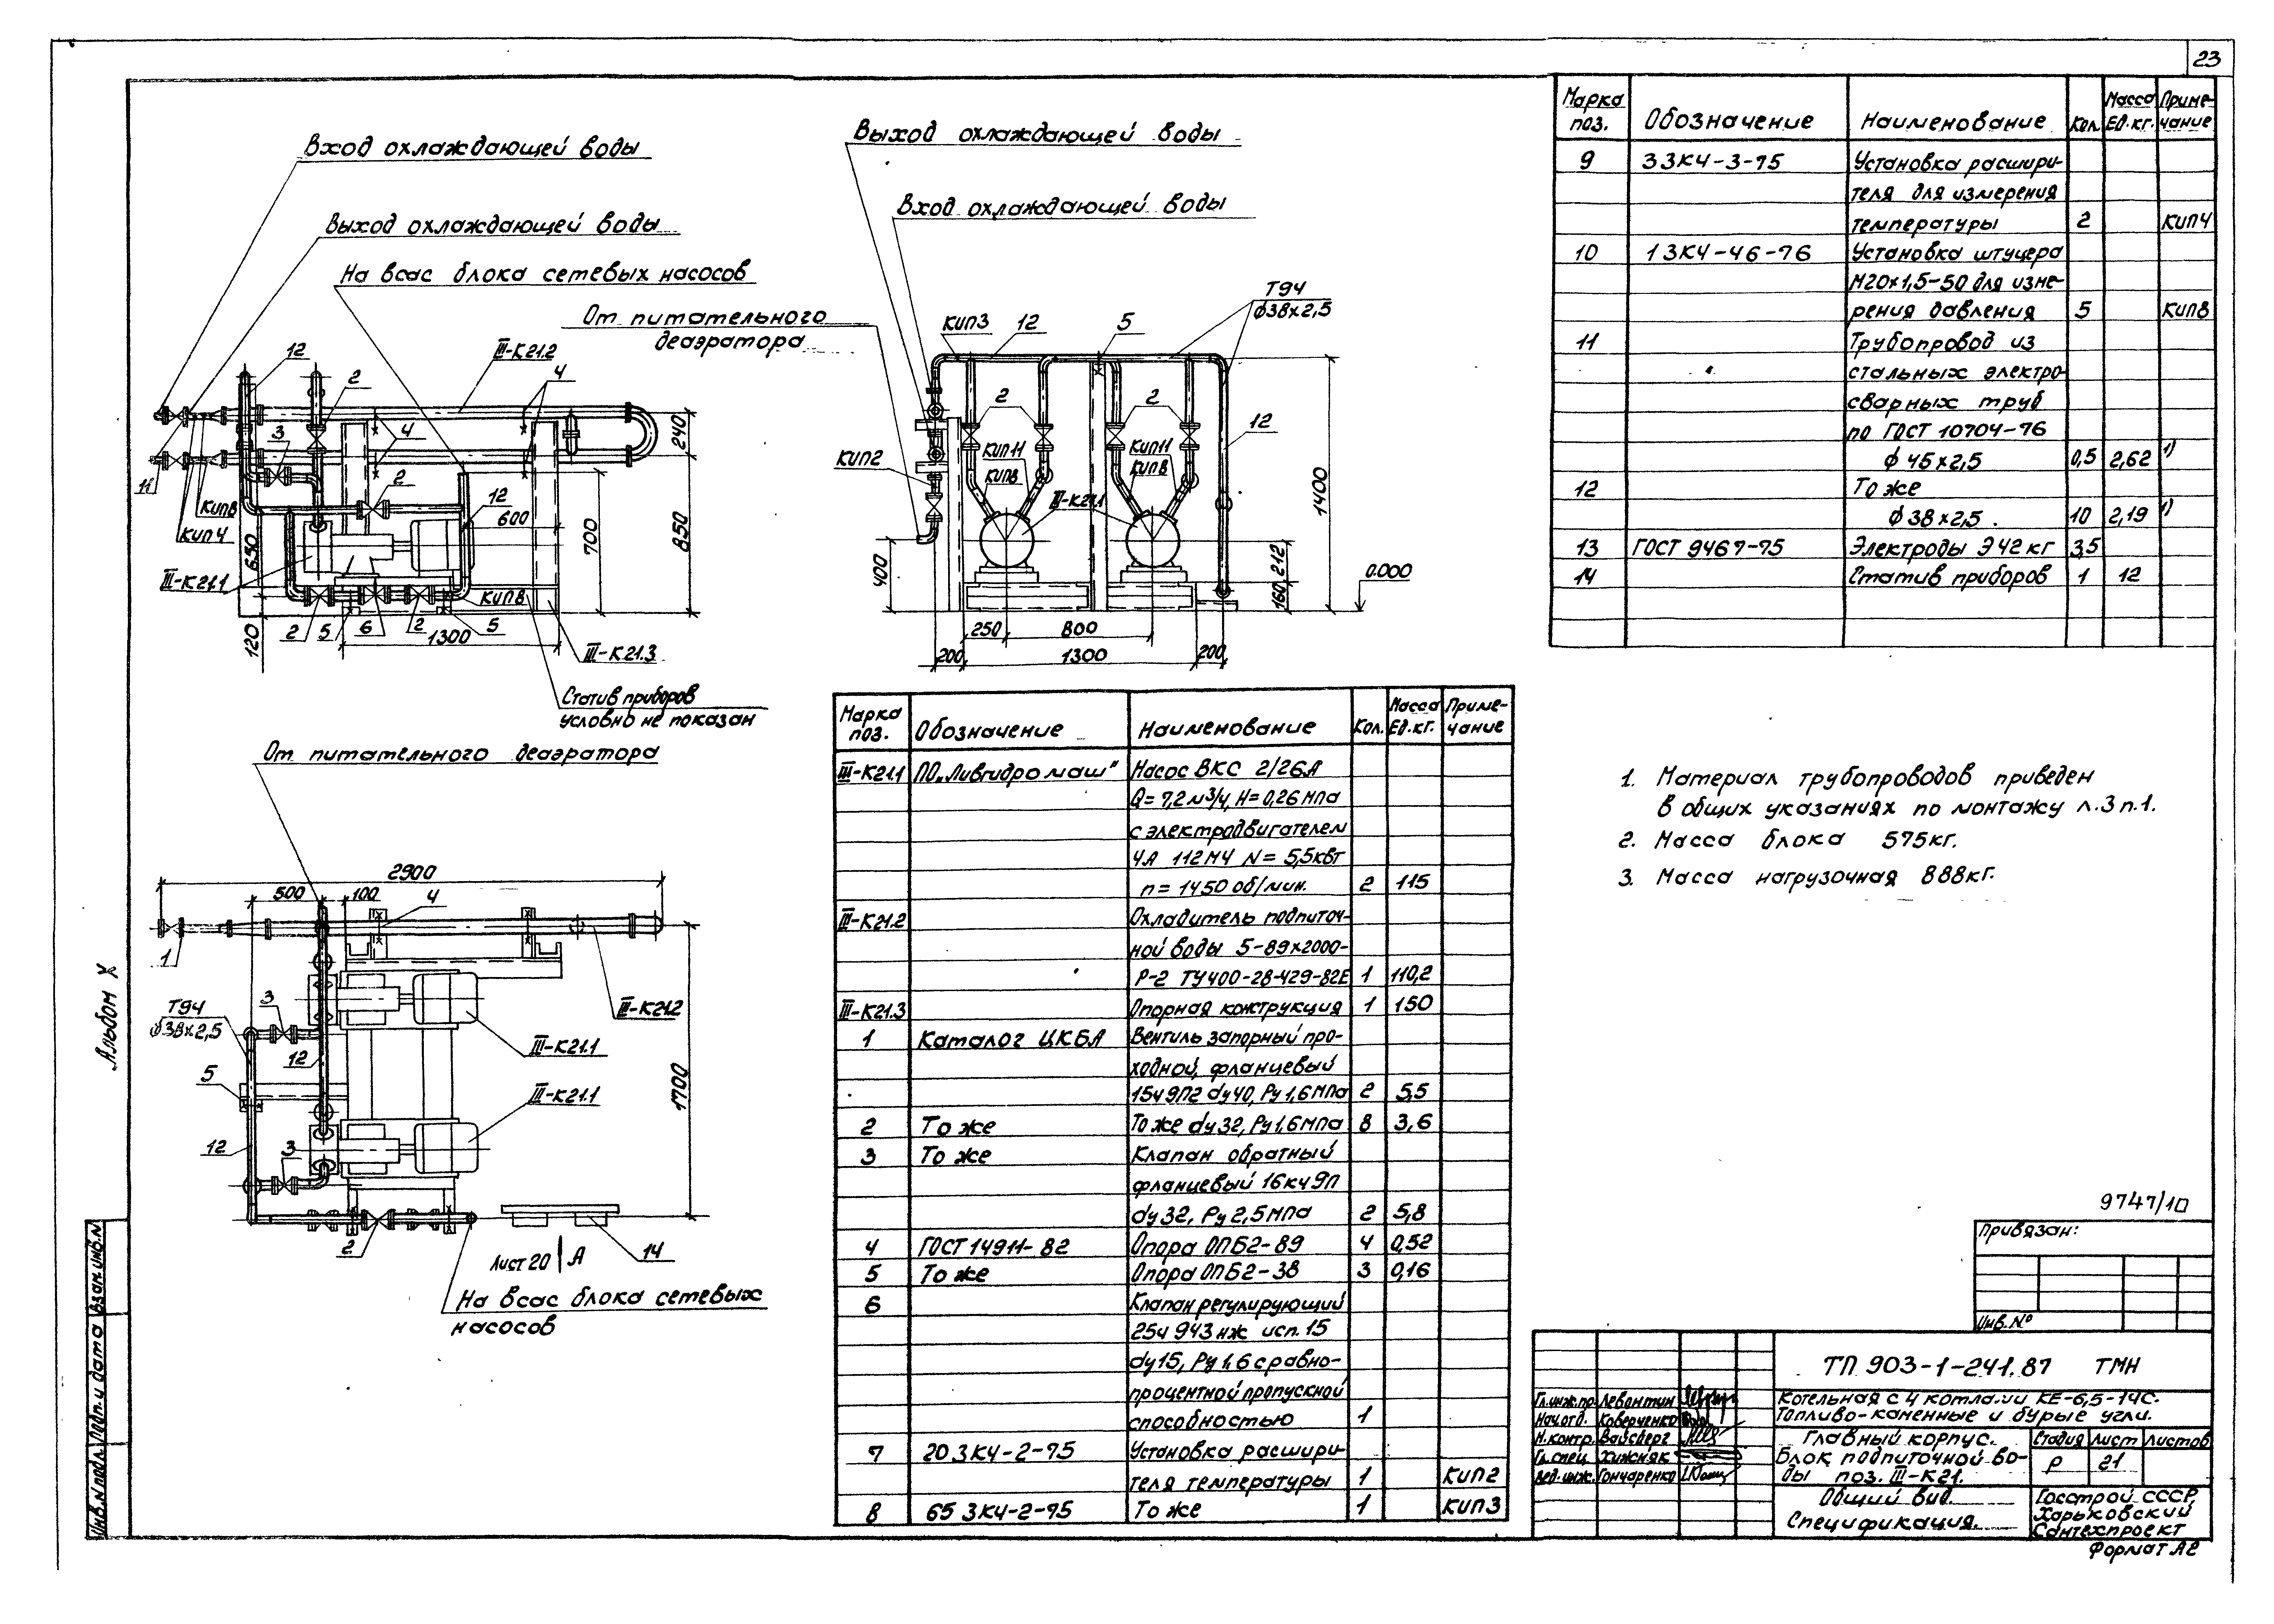 23
Вход охлаждающей воды
Выход охлаждающей воды
На всас блока сетевых насосов
От питательного
деаэратора
12
2
III-К21.2
4
3
4
2
12
11
КИП8
КИП4
III-К21.1
650
120
600
700
850
240
КИП8
2
5
6
2
5
1300
III-К21.3
Статив приборов
условно не показан
Выход охлаждающей воды
Вход охлаждающей воды
КИП3
12
5
Т94
ф38х2,5
2
2
12
КИП2
КИП11
КИП8
КИП11
КИП8
III-К21.1
1400
400
160
212
0.000
250
800
200
1300
200
От питательного деаэратора
2900
500
100
4
1
Т94
ф38х2,5
3
12
5
12
3
III-К21.2
III-К21.1
III-К21.1
1700
2
14
Лист 20 А
На всас блока сетевых
насосов
Марка поз. Обозначение Наименование Кол. Масса Ед.кг. Примечание
III-К21.1 ПО„Ливгидромаш" Насос ВКС 2/26А
Q= 7,2 м³/ч, Н= 0,26 мПа
с электродвигателем
4А 112М4 N= 5,5квт
n= 1450 об/мин. 2 115
III-К21.2 Охладитель подпиточ-
ной воды 5-89х2000-
Р-2 ТУ400-28-429-82Е 1 110,2
III-К21.3 Опорная конструкция 1 150
1 Каталог ЦКБА Вентиль запорный про-
ходной, фланцевый
15ч9П2 dу40, Ру1,6МПа 2 5,5
2 То же То же dу32, Ру1,6МПа 8 3,6
3 То же Клапан обратный
фланцевый 16кч9П
dу32, Ру2,5МПа 2 5,8
4 ГОСТ 14911-82 Опора ОПБ2-89 4 0,52
5 То же Опора ОПБ2-38 3 0,16
6 Клапан регулирующий
25ч943нж исп.15
dу15, Ру1,6 с равно-
процентной пропускной
способностью 1
7 20ЗК4-2-75 Установка расшири-
теля температуры 1 КИП2
8 65ЗК4-2-75 То же 1 КИП3
Марка поз. Обозначение Наименование Кол. Масса Ед.кг. Примечание
9 3ЗК4-3-75 Установка расшири-
теля для измерения
температуры 2 КИП4
10 1ЗК4-46-76 Установка штуцера
М20х1,5-50 для изме-
рения давления 5 КИП8
11 Трубопровод из
стальных электро-
сварных труб
по ГОСТ 10704-76
ф 45х2,5 0,5 2,62 1)
12 То же
ф 38х2,5 . 10 2,19 1)
13 ГОСТ 9467-75 Электроды Э42 кг 3,5
14 Статив приборов 1 12
1. Материал трубопроводов приведен
в общих указаниях по монтажу л.3 п.1.
2. Масса блока 575кг.
3. Масса нагрузочная 888кг.
9747/10
Привязан:
Инв.№
ТП 903-1-241.87 ТМН
Котельная с 4 котлами КЕ-6,5-14С.
Топливо-каменные и бурые угли.
Гл.инж.пр. Левантин
Нач.отд. Коверченко
Н.контр. Вайсберг
Гл.спец. Хижняк
Вед.инж. Гончаренко
Главный корпус.
Блок подпиточной во-
ды поз. III-К21.
Стадия Лист Листов
Р 21
Общий вид.
Спецификация.
Госстрой СССР
Харьковский
Сантехпроект
Формат А2
Альбом X
Инв.№ подл. Подп. и дата Взам.инв.№